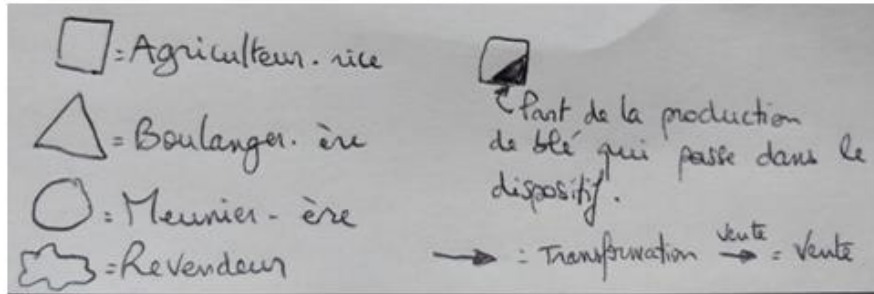 = Agriculteur.rice
= Boulanger.ère
= Meunier-ère
= Revendeur
Part de la production
de blé qui passe dans le
dispositif.
: Transformation vente = Vente